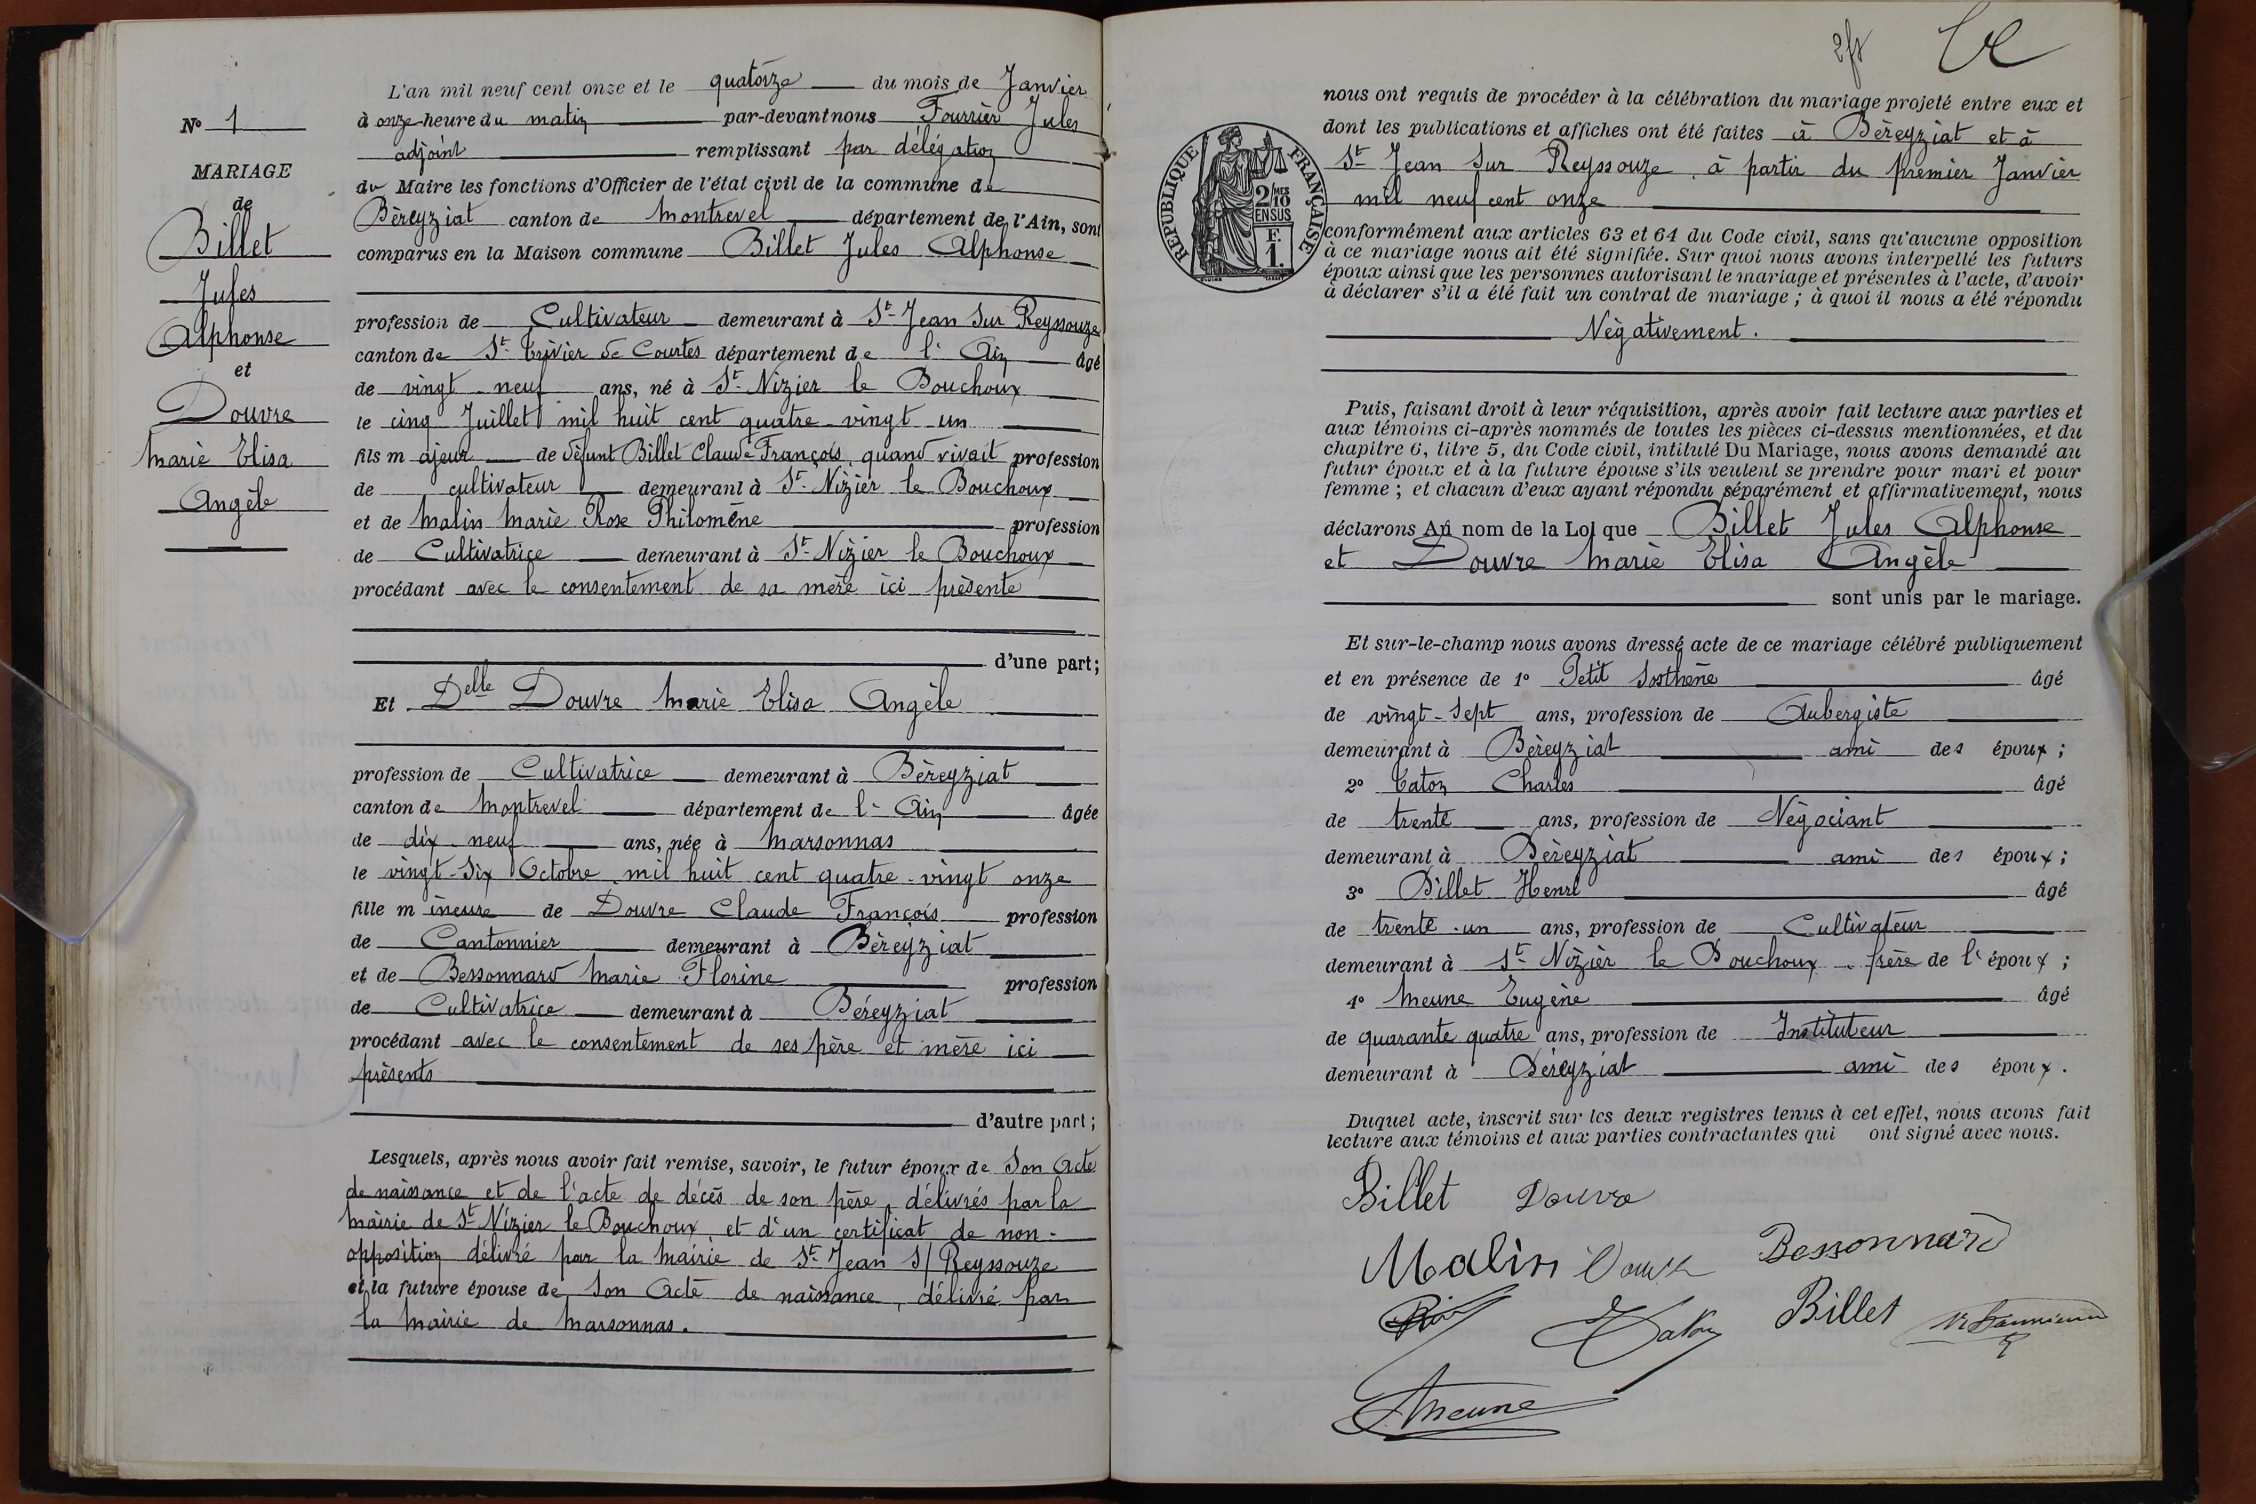 L'an mil neuf cent onze et le quatorze du mois de Janvier
à onze heure du matin par-devant nous Fourrier Jules
adjoint remplissant par délégation
du Maire les fonctions d'Officier de l'état civil de la commune de
Béreyziat canton de Montrevel département de l'Ain, sont
comparus en la Maison commune Billet Jules Alphonse
profession de Cultivateur demeurant à St Jean sur Reyssouze
canton de St Trivier de Courtes département de l'Ain âgé
de vingt-neuf ans, né à St Nizier le Bouchoux
le cinq Juillet mil huit cent quatre-vingt-un
fils majeur de défunt Billet Claude François, quand vivait profession
de cultivateur demeurant à St Nizier le Bouchoux
et de Malin Marie Rose Philomène profession
de Cultivatrice demeurant à St Nizier le Bouchoux
procédant avec le consentement de sa mère ici présente
d'une part;
Et Delle Douvre Marie Elisa Angèle
profession de Cultivatrice demeurant à Béreyziat
canton de Montrevel département de l'Ain âgée
de dix-neuf ans, née à Marsonnas
le vingt-six Octobre mil huit cent quatre-vingt onze
fille mineure de Douvre Claude François profession
de Cantonnier demeurant à Béreyziat
et de Bessonnard Marie Florine profession
de Cultivatrice demeurant à Béreyziat
procédant avec le consentement de ses père et mère ici
présents
d'autre part;
Lesquels, après nous avoir fait remise, savoir, le futur époux de son Acte
de naissance et de l'acte de décès de son père, délivrés par la
mairie de St Nizier le Bouchoux et d'un certificat de non-
opposition délivré par la mairie de St Jean s/ Reyssouze
et la future épouse de son Acte de naissance, délivré par
la mairie de Marsonnas.
No 1
MARIAGE
de
Billet
Jules
Alphonse
et
Douvre
Marie Elisa
Angèle
nous ont requis de procéder à la célébration du mariage projeté entre eux et
dont les publications et affiches ont été faites à Béreyziat et à
St Jean sur Reyssouze, à partir du premier Janvier
mil neuf cent onze
conformément aux articles 63 et 64 du Code civil, sans qu'aucune opposition
à ce mariage nous ait été signifiée. Sur quoi nous avons interpellé les futurs
époux ainsi que les personnes autorisant le mariage et présentes à l'acte, d'avoir
à déclarer s'il a été fait un contrat de mariage; à quoi il nous a été répondu
Négativement.
Puis, faisant droit à leur réquisition, après avoir fait lecture aux parties et
aux témoins ci-après nommés de toutes les pièces ci-dessus mentionnées, et du
chapitre 6, titre 5, du Code civil, intitulé Du Mariage, nous avons demandé au
futur époux et à la future épouse s'ils veulent se prendre pour mari et pour
femme; et chacun d'eux ayant répondu séparément et affirmativement, nous
déclarons Au nom de la Loi que Billet Jules Alphonse
et Douvre Marie Elisa Angèle
sont unis par le mariage.
Et sur-le-champ nous avons dressé acte de ce mariage célébré publiquement
et en présence de 1o Petit Sosthène âgé
de vingt-sept ans, profession de Aubergiste
demeurant à Béreyziat ami des époux;
2o Taton Charles âgé
de trente ans, profession de Négociant
demeurant à Béreyziat ami des époux;
3o Billet Henri âgé
de trente-un ans, profession de Cultivateur
demeurant à St Nizier le Bouchoux, frère de l'époux;
4o Meune Eugène âgé
de quarante quatre ans, profession de Instituteur
demeurant à Béreyziat ami des époux.
Duquel acte, inscrit sur les deux registres tenus à cet effet, nous avons fait
lecture aux témoins et aux parties contractantes qui ont signé avec nous.
Billet Douvre
Malin Douvre Bessonnard
Taton Billet
Meune
RÉPUBLIQUE FRANÇAISE
2/MES
10
EN SUS
F.
1.